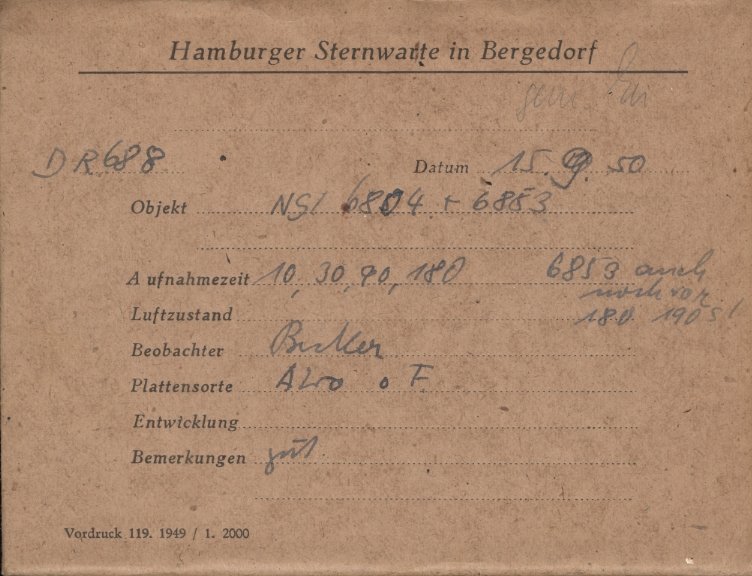 Hamburger Sternwarte in Bergedorf
DR688
Datum 15. 9. 50
Objekt 6804 + 6853
Aufnahmezeit 10, 30, 90, 180
6853 auch
noch vor
180 190 s!
Luftzustand
Beobachter Becker
Plattensorte o F.
Entwicklung
Bemerkungen gut
Vordruck 119. 1949 / 1. 2000